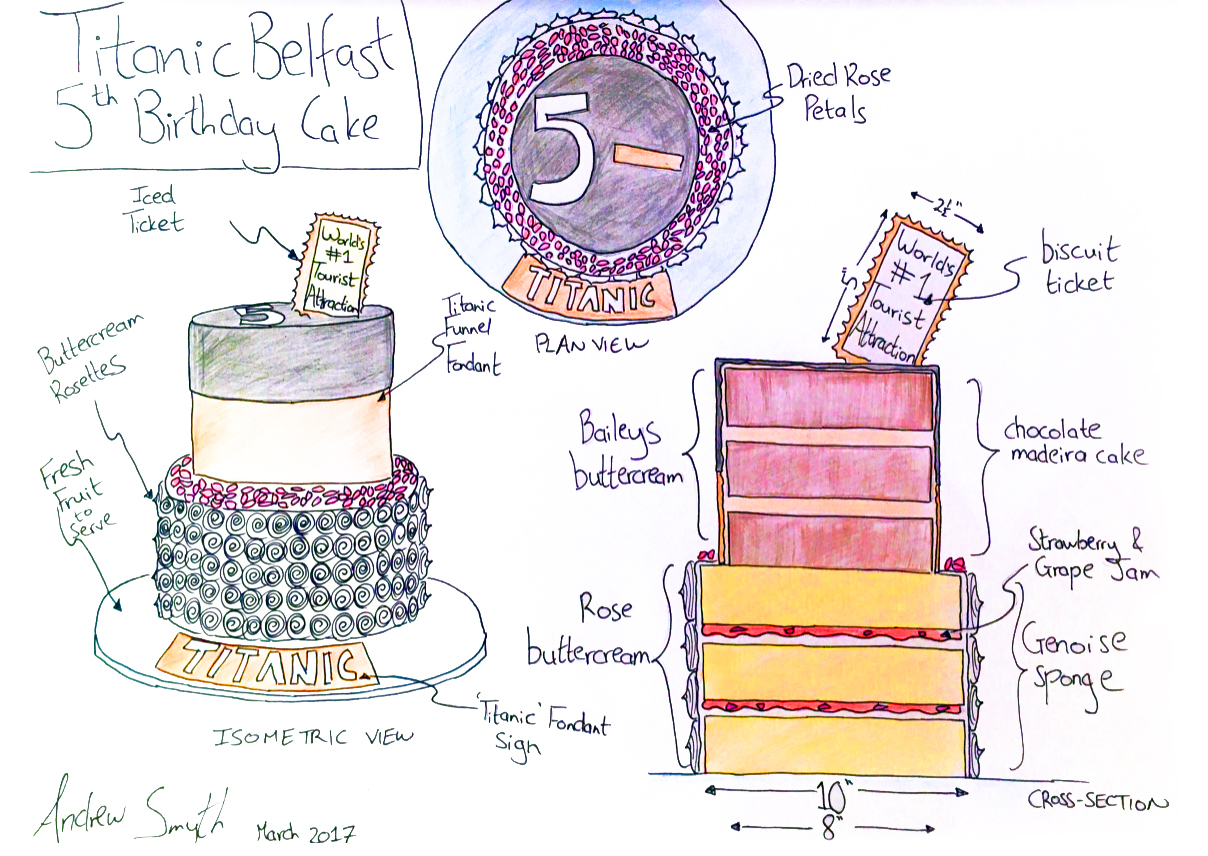 Titanic Belfast
5th Birthday Cake
Iced
Ticket
World's
#1
Tourist
Attraction
5
Buttercream
Rosettes
Fresh
Fruit
to
serve
Titanic
Funnel
Fondant
TITANIC
'Titanic' Fondant
Sign
ISOMETRIC VIEW
5
TITANIC
PLAN VIEW
Dried Rose
Petals
2½"
5"
World's
#1
Tourist
Attraction
biscuit
ticket
Baileys
buttercream
chocolate
madeira cake
Strawberry &
Grape Jam
Rose
buttercream
Genoise
sponge
10"
8"
CROSS-SECTION
Andrew Smyth March 2017